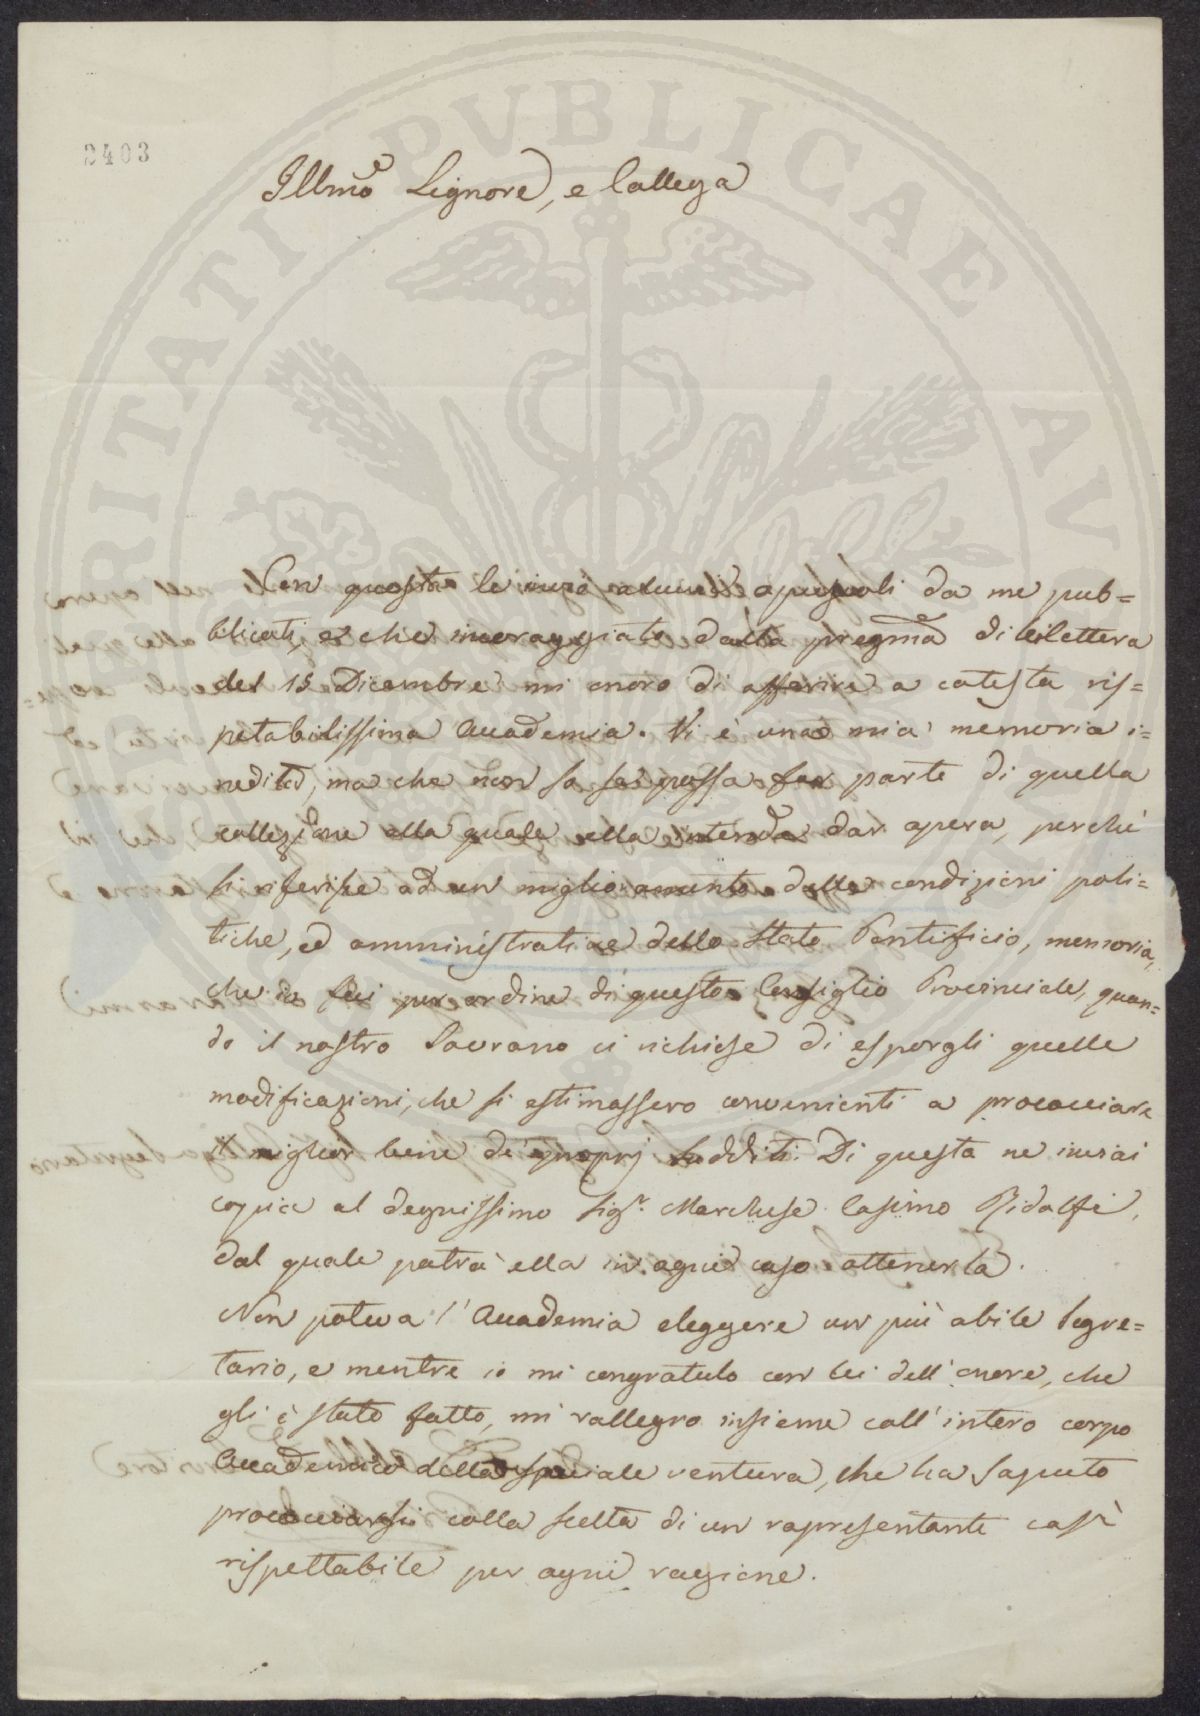 2403
Illmo Signore, e Collega
Con questa le invio alcuni opuscoli da me pub=
blicati, e che incoraggiato dalla pregma di lei lettera
del 15 Dicembre mi onoro di offerire a cotesta ris=
petabilissima Accademia. Vi è una mia memoria i=
nedita, ma che non so se possa far parte di quella
collezione alla quale ella intende dar opera, perchè
si riferisce ad un miglioramento delle condizioni poli=
tiche, ed amministrative dello Stato Pontificio, memoria,
che io feci per ordine di questo Consiglio Provinciale, quan=
do il nostro Sovrano ci richiese di esporgli quelle
modificazioni, che si estimassero convenienti a procacciare
il miglior bene de' proprj sudditi. Di questa ne inviai
copia al degnissimo Sigr. Marchese Cosimo Ridolfi,
dal quale potrà ella in ogni caso ottenerla.
Non poteva l'Accademia eleggere un più abile Segre=
tario, e mentre io mi congratulo con lei dell'onore, che
gli è stato fatto, mi rallegro insieme coll'intero corpo
Accademico della speciale ventura, che ha saputo
procacciarsi colla scelta di un rapresentante così
rispettabile per ogni ragione.